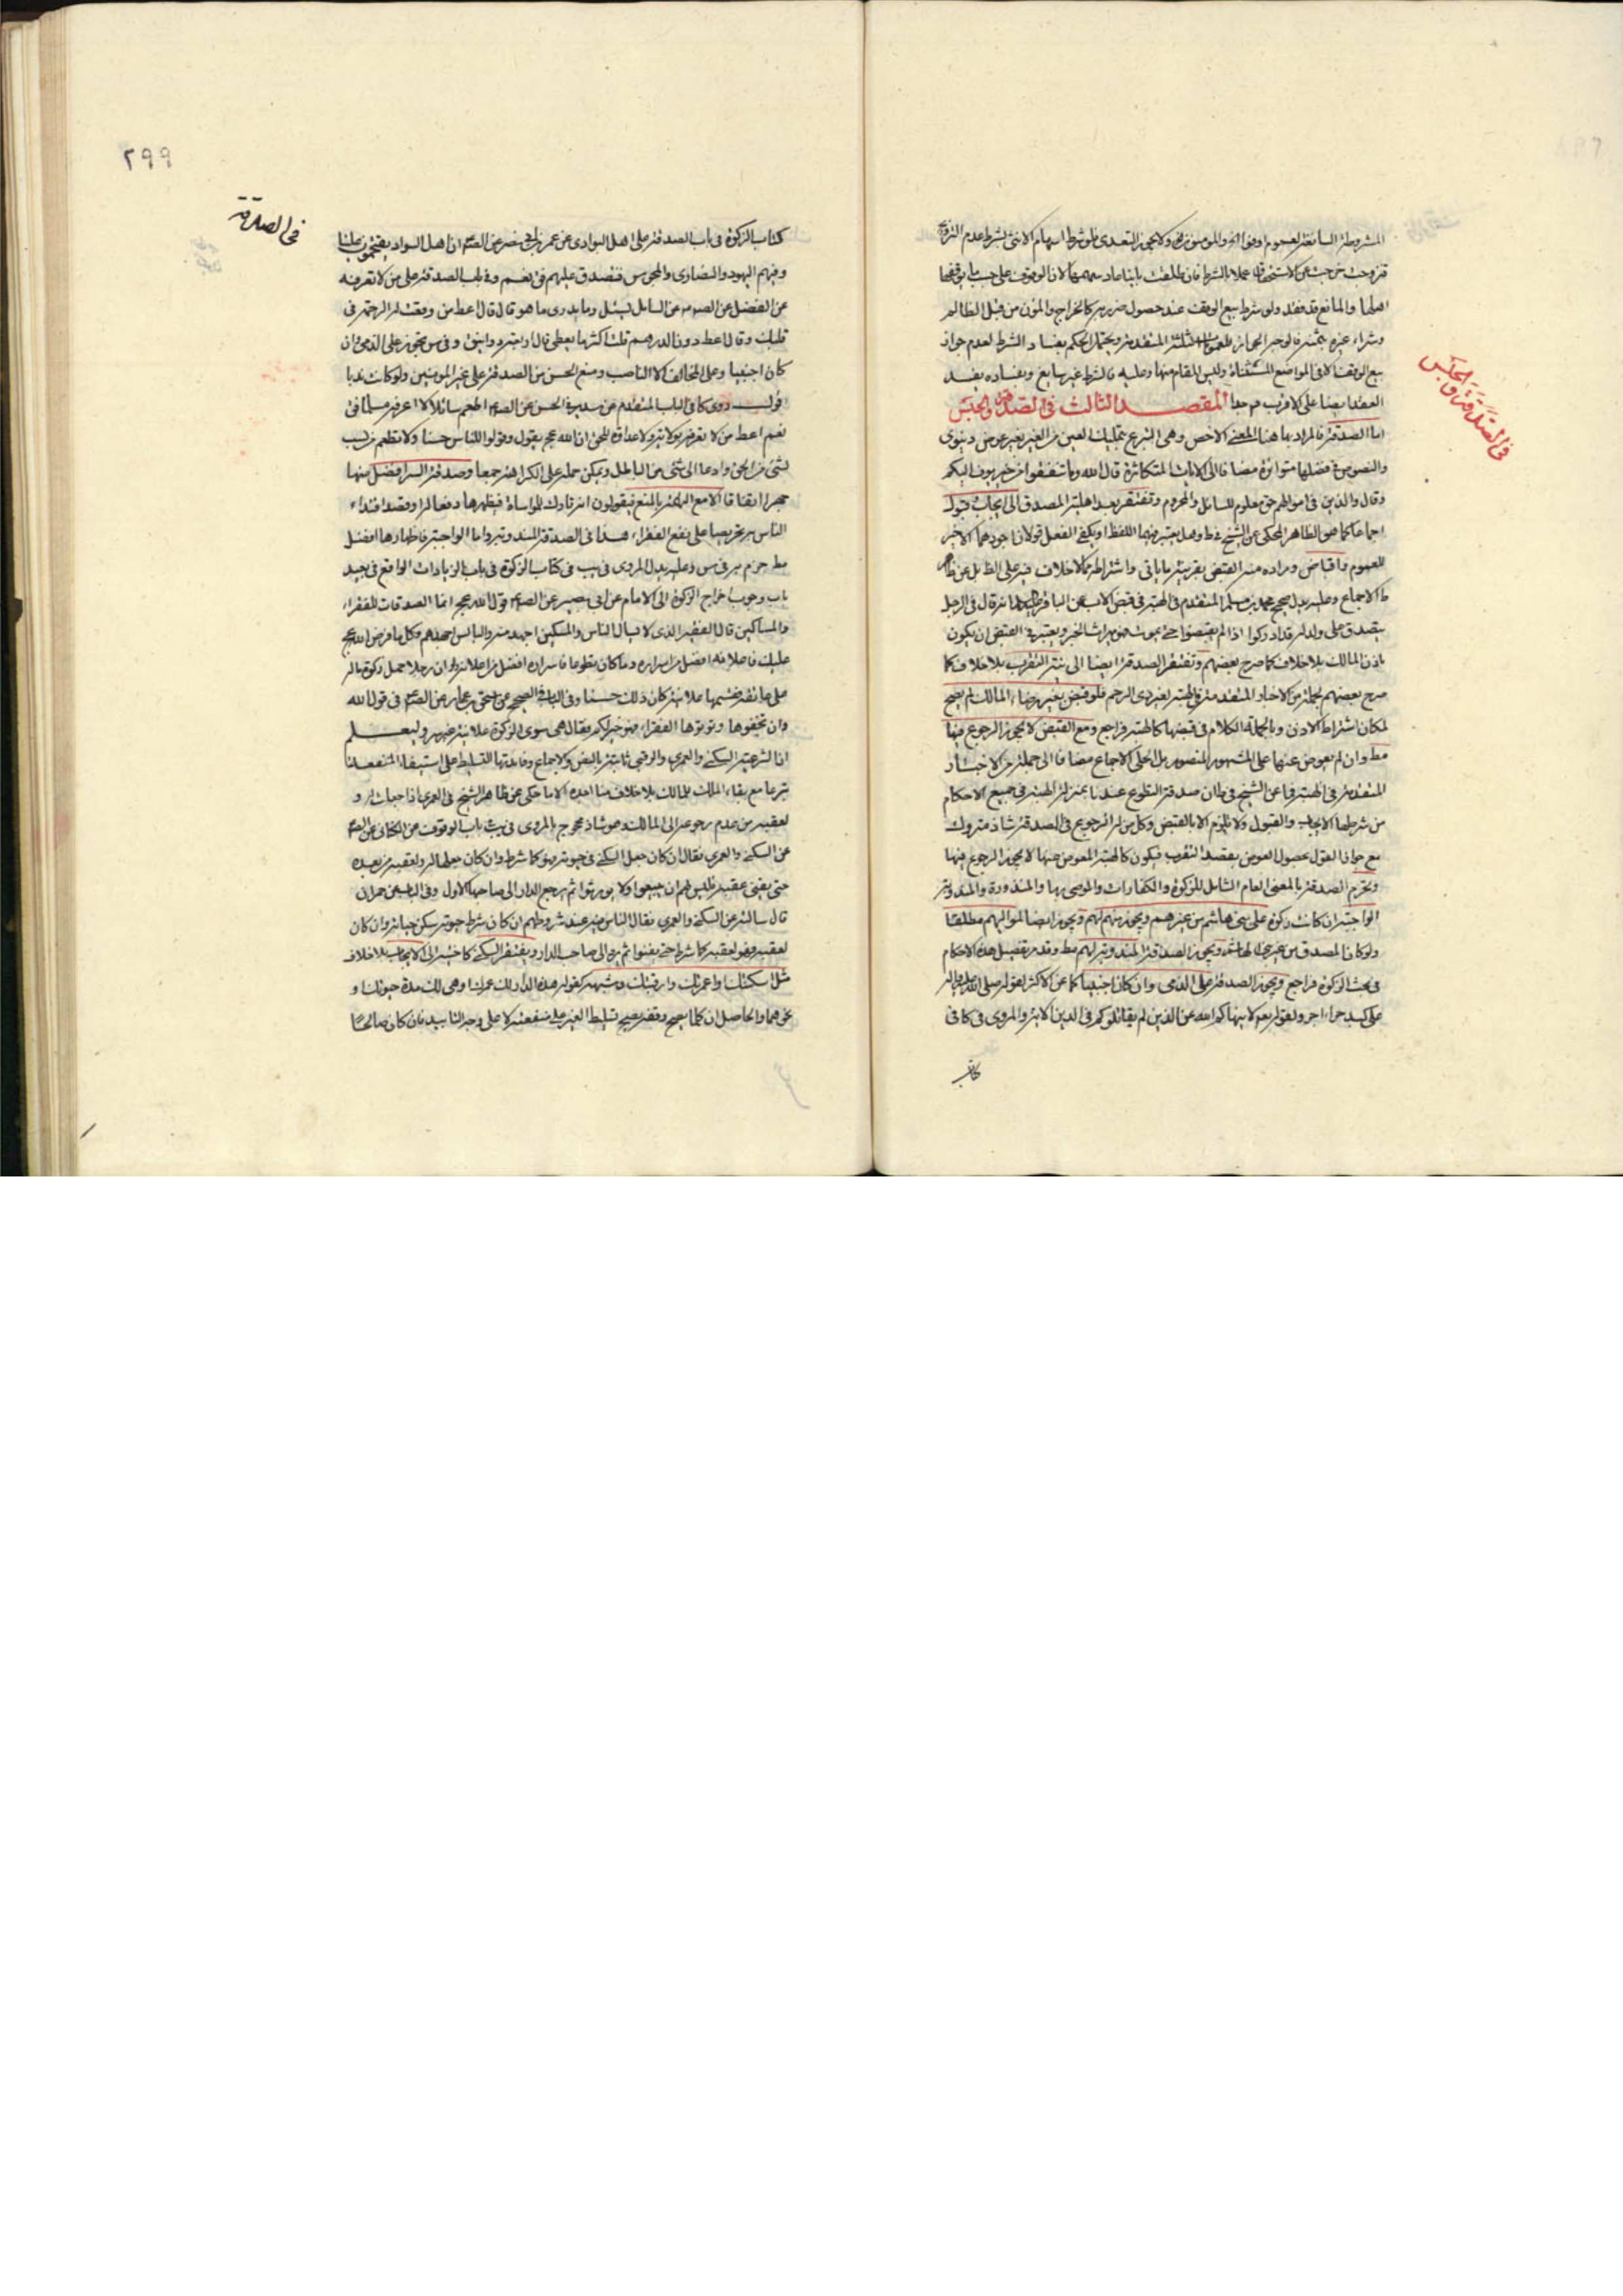 فى الصدقة والحبس
المشروطة السائغة لعموم اوفوا والمومنون ولا يجوز التعدى فلو شرط اسهام الانثى بشرط عدم التزويج
فتزوجت خرجت عن الاستحقاق عملا بالشرط فان طلقت باينا عاد سهمها لان الوقوف على حسب ما يوقفها
اهلها والمانع قد فقد ولو شرط بيع الوقف عند حصول ضرر به كالخراج والمؤن من قبل الظالم
وشراء غيره بثمنه فالوجه الجواز للعمومات الثلثة المتقدمة ويحتمل الحكم بفساد الشرط لعدم جواز
بيع الوقف الا فى المواضع المستثناة وليس المقام منها وعليه فالشرط غير سايغ وبفساده يفسد
العقد ايضا على الاقرب م جدا المقصد الثالث فى الصدقة والحبس
اما الصدقة فالمراد بها هنا المعنى الاخص وهى التبرع بتمليك العين من الغير بغير عوض دنيوى
والنصوص فى فضلها متواترة مضافا الى الايات المتكاثرة قال الله وما تنفقوا من خير يوف اليكم
وقال والذين فى اموالهم حق معلوم للسائل والمحروم وتفتقر بعد اهلية المصدق الى ايجاب وقبول
اجماعا كما هو الظاهر المحكى عن الشيخ فى ط وهل يعتبر فيهما اللفظ او يكفى الفعل قولان اجودهما الاخير
للعموم واقباض ومراده منه القبض بقرينة ما ياتى واشتراطه مما لا خلاف فيه على الظ بل عن ظاهر
ط الاجماع وعليه يدل صحيح محمد بن مسلم المتقدم فى الهبة فى قبض الاب عن الباقر عليه السلام انه قال فى الرجل
يتصدق على ولد له قد ادركوا اذا لم يقبضوا حتى يموت فهو ميراث الخبر ويعتبر فى القبض ان يكون
باذن المالك بلا خلاف كما صرح بعضهم وتفتقر الصدقة ايضا الى نية التقرب بلا خلاف كما
صرح بعضهم لجملة من الاخبار المتقدمة فى الهبة لغير ذى الرحم فلو قبض بغير رضاء المالك لم يصح
لمكان اشتراط الاذن وبالجملة الكلام فى قبضها كالهبة فراجع ومع القبض لا يجوز الرجوع فيها
مط وان لم يعوض عنها على المشهور المنصور بل المحكى الاجماع مضافا الى جملة من الاخبار
المتقدمة فى الهبة فما عن الشيخ فى ط ان صدقة التطوع عندنا بمنزلة الهبة فى جميع الاحكام
من شرطها الايجاب والقبول ولا يلزم الا بالقبض وكل من له الرجوع فى الصدقة شاذ متروك
مع جواز القول بحصول العوض بقصد التقرب فيكون كالهبة المعوض عنها لا يجوز الرجوع فيها
وتحرم الصدقة بالمعنى العام الشامل للزكوة والكفارات والموصى بها والمنذورة والمندوبة
الواجبة ان كانت زكوة على بنى هاشم من غيرهم ويجوز منهم لهم ويجوز ايضا لمواليهم مطلقا
ولو كان المصدق من غير بنى هاشم ويجوز الصدقة المندوبة لهم مط وقد مر تفصيل هذه الاحكام
فى بحث الزكوة فراجع ويجوز الصدقة على الذمى وان كان اجنبيا كما عن الاكثر لقوله صلى الله عليه واله
على كبد حراء اجر ولقوله تعالى لا ينهاكم الله عن الذين لم يقاتلوكم فى الدين الاية والمروى فى كا فى
كتاب
٢٩٩
فى الصدقة
كتاب الزكوة فى باب الصدقة على اهل البوادى عن عمر بن ابى نصر عن الصم ان اهل السواد يقتحمون علينا
وفيهم اليهود والنصارى والمجوس فنتصدق عليهم فق نعم وفى باب الصدقة على من لا تعرفه
عن الفضل عن الصم عن السائل يسئل وما يدرى ما هو قال قال اعط من وقعت له الرحمة فى
قلبك وقال اعط دون الدرهم قلت اكثر ما يعطى قال اربعة دوانيق وفى س تجوز على الذمى وان
كان اجنبيا وعلى المخالف الا الناصب ومنع الحسن من الصدقة على غير المومنين ولو كانت ندبا
اقول روى كا فى الباب المتقدم عن سدير عن الصم اطعم سائلا لا اعرفه مسلما فق
نعم اعط من لا تعرفه بولاية ولا عداوة للحق ان الله عج يقول وقولوا للناس حسنا ولا تطعم من نصب
لشئ من الحق او دعا الى شئ من الباطل ويمكن حمله على الكراهة جمعا وصدقة السر افضل منها
جهرا اتفاقا الا مع التهمة بالمنع فيقولون انه تارك للمواساة فيظهرها دفعا لها او قصد اقتداء
الناس به تحريصا على نفع الفقراء هذا فى الصدقة المندوبة واما الواجبة فاظهارها افضل
مط جزم به فى س وعليه يدل المروى فى يب فى كتاب الزكوة فى باب الزيادات الواقع فى بعيد
باب وجوب اخراج الزكوة الى الامام عن ابى بصير عن الصم قول الله عج انما الصدقات للفقراء
والمساكين قال الفقير الذى لا يسال الناس والمسكين اجهد منه والبائس اجهدهم وكل ما فرض الله عج
عليك فاعلانه افضل من اسراره وما كان تطوعا فاسراره افضل من اعلانه ولو ان رجلا حمل زكوة ماله
على عاتقه فقسمها علانية كان ذلك حسنا وفى الباب فى الصحيح عن اسحق بن عمار عن الصم فى قول الله
وان تخفوها وتؤتوها الفقراء فهو خير لكم فقال هى سوى الزكوة علانية غير سر وليعلم
ان الشرعية السكنى والعمرى والرقبى ثابتة بالنص والاجماع وفائدتها التسليط على استيفاء المنفعة
تبرعا مع بقاء الملك للمالك بلا خلاف منا اجده الا ما حكى عن ظاهر الشيخ فى العمرى اذا جعلت له و
لعقبه من عدم رجوعه الى المالك وهو شاذ محجوج بالمروى فى يب باب الوقوف عن الكنانى عن الصم
عن السكنى والعمرى فقال ان كان جعل السكنى فى حيوته فهو كما شرط وان كان جعلها له ولعقبه من بعده
حتى يفنى عقبه فليس لهم ان يبيعوا ولا يورثوا ثم يرجع الدار الى صاحبها الاول وفى الباب عن حمران
قال سالته عن السكنى والعمرى فقال الناس فيه عند شروطهم ان كان شرط حيوته سكن حياته وان كان
لعقبه فهو لعقبه كما شرط حتى يفنوا ثم يرد الى صاحب الدار ويفتقر السكنى كاختيها الى الايجاب بلا خلاف
مثل اسكنتك واعمرتك وارقبتك وشبهه كقوله هذه الدار لك عمرك او هى لك مدة حيوتك و
نحوهما والحاصل ان كلما يصح وقفه يصح تسليط الغير على منفعته لا على وجه التابيد فان كان صالحا